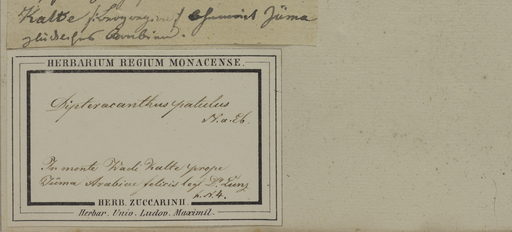 Kalte
glückliches Arabien.
HERBARIUM REGIUM MONACENSE.
Dipteracanthus patulus
N. a. Es.
In monte Kadi Kalte prope
Djüma Arabiae felicis leg. Dr.
h. N. 4.
HERB. ZUCCARINII
Herbar. Univ. Ludov. Maximil.